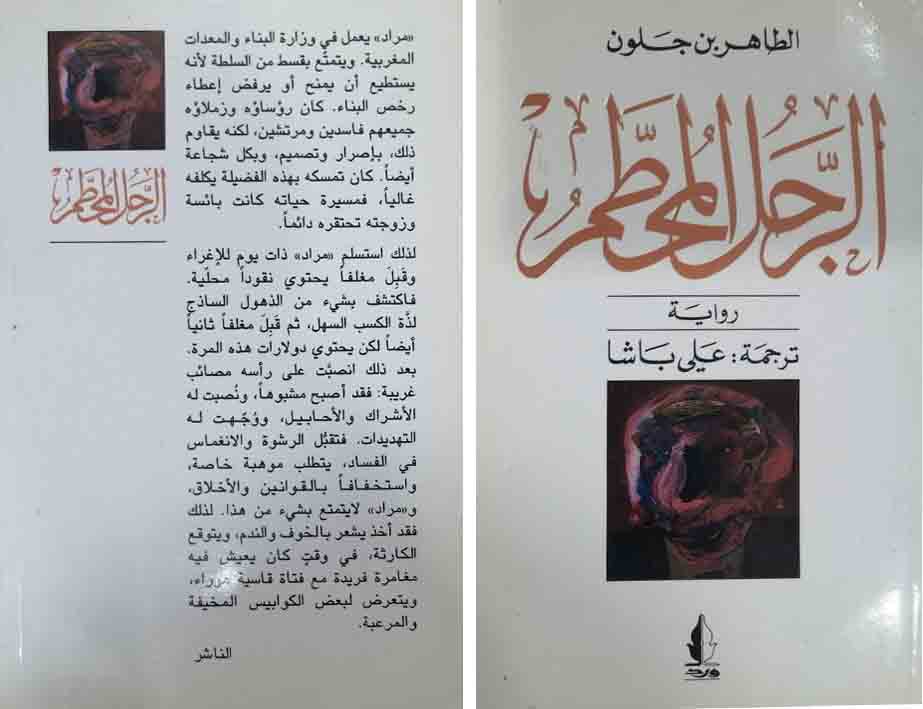 الطاهر بن جلون
الرجل المحطم
رواية
ترجمة: علي باشا
ورد
الرجل المحطم
«مراد» يعمل في وزارة البناء والمعدات
المغربية. ويتمتّع بقسط من السلطة لأنه
يستطيع أن يمنح أو يرفض إعطاء
رخص البناء. كان رؤساؤه وزملاؤه
جميعهم فاسدين ومرتشين، لكنه يقاوم
ذلك، بإصرار وتصميم، وبكل شجاعة
أيضاً. كان تمسكه بهذه الفضيلة يكلفه
غالياً، فمسيرة حياته كانت بائسة
وزوجته تحتقره دائماً.
لذلك استسلم «مراد» ذات يوم للإغراء
وقَبِلَ مغلفاً يحتوي نقوداً محلّية.
فاكتشف بشيء من الذهول الساذج
لذّة الكسب السهل، ثم قَبِلَ مغلفاً ثانياً
أيضاً لكن يحتوي دولارات هذه المرة.
بعد ذلك انصبَّت على رأسه مصائب
غريبة: فقد أصبح مشبوهاً، ونُصبت له
الأشراك والأحابيل، ووُجّهت له
التهديدات. فتقبُّل الرشوة والانغماس
في الفساد، يتطلب موهبة خاصة،
واستخفافاً بالقوانين والأخلاق،
و«مراد» لايتمتع بشيء من هذا. لذلك
فقد أخذ يشعر بالخوف والندم، ويتوقع
الكارثة، في وقتٍ كان يعيش فيه
مغامرة فريدة مع فتاة قاسية
ويتعرض لبعض الكوابيس المخيفة
والمرعبة.
الناشر